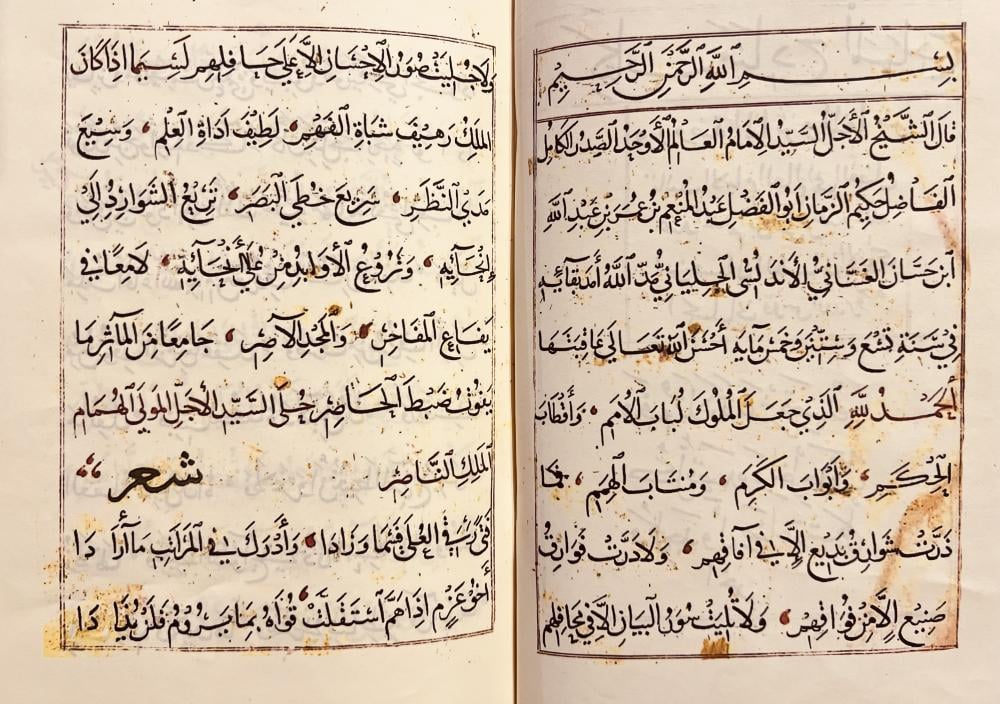 بسم الله الرحمن الرحيم
قال الشيخ الأجل السيد الإمام العالم الأوحد الصدر الكامل
الفاضل حكيم الزمان أبو الفضل عبد المنعم بن عمر بن عبد الله
ابن حسان الغساني الأندلسي الجلياني مد الله أمد بقائه
في سنة تسع وستين وخمس مايه أحسن الله تعالى عاقبتها
الحمد لله الذي جعل الملوك لباب الأمم وأقطاب
الحكم وأبواب الكرم ومنتاب الهمم فما
ذرت شوارق بديع إلا في آفاقهم ولا درت فوارق
صنيع إلا من فواقهم ولا تليت سور البيان إلا في محافلهم
ولا جليت صور الإحسان إلا على جحافلهم لا سيما اذا كان
الملك رهيف شباة الفهم لطيف اداة العلم وسيع
مدى النظر سريع خطى البصر تريع الشوارد إلى
إنحايه وتروع الأوابد من على أنحايه لامعا في
يفاع المفاخر والمجد الآصر جامعا من المآثر ما
يفوت ضبط الحاصر حلى السيد الأجل المولى الهمام
الملك الناصر شعر
فتى رقي العلى فنما وزادا وأدرك في المراتب ما أرادا
أخو عزم اذا هم استقلت قواه بما يروم فلن يذادا